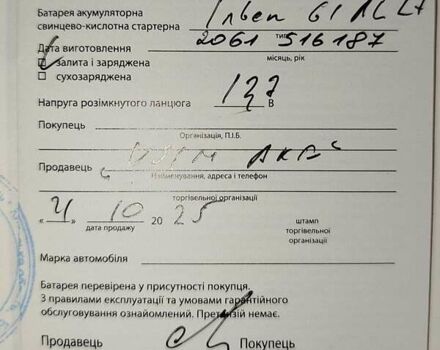 Батарея акумуляторна
свинцево-кислотна стартерна 61
тип
Дата виготовлення 2061 516187
залита і заряджена місяць, рік
сухозаряджена
Напруга розімкнутого ланцюга 127 В
Покупець
Організація, П.І.Б.
Продавець
Найменування, адреса і телефон
торгівельної організації
« 4 » 10 20 25
дата продажу
штамп
торгівельної
організації
Марка автомобіля
Батарея перевірена у присутності покупця.
З правилами експлуатації та умовами гарантійного
обслуговування ознайомлений. Претензій немає.
Продавець Покупець